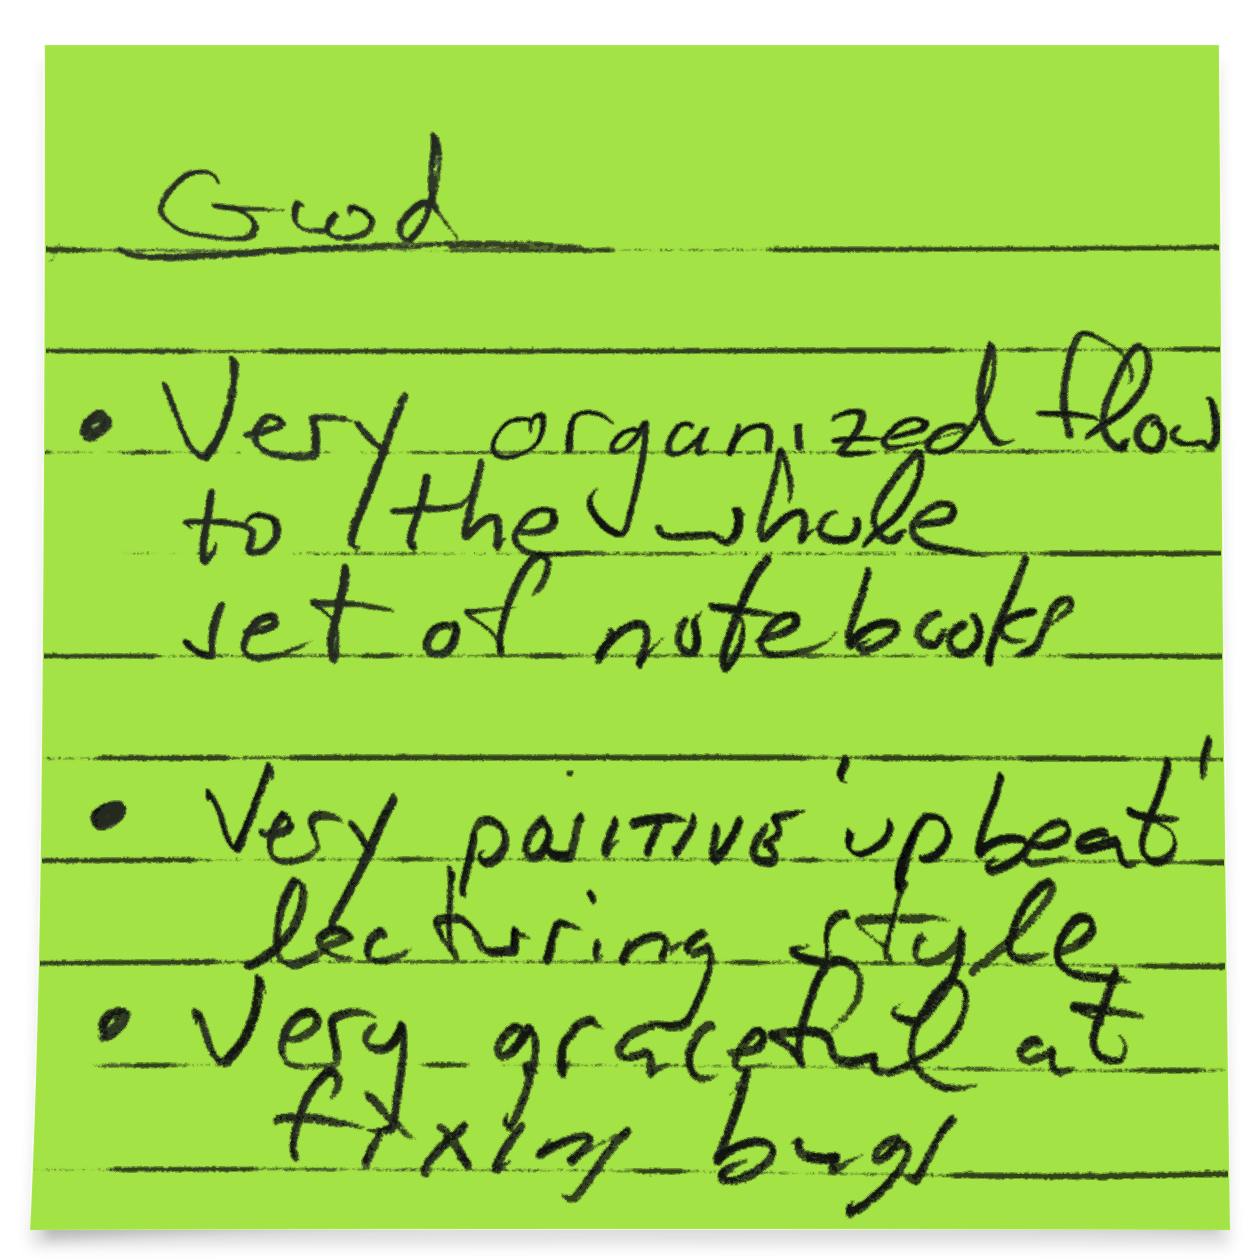 Good
• Very organized flow
to the whole
set of notebooks
• Very positive 'upbeat'
lecturing style
• Very graceful at
fixing bugs